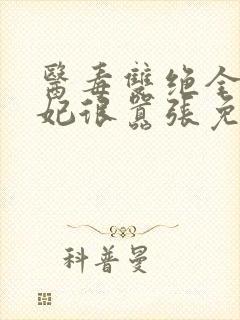 醫毒雙绝全
妃很囂張免
科普曼